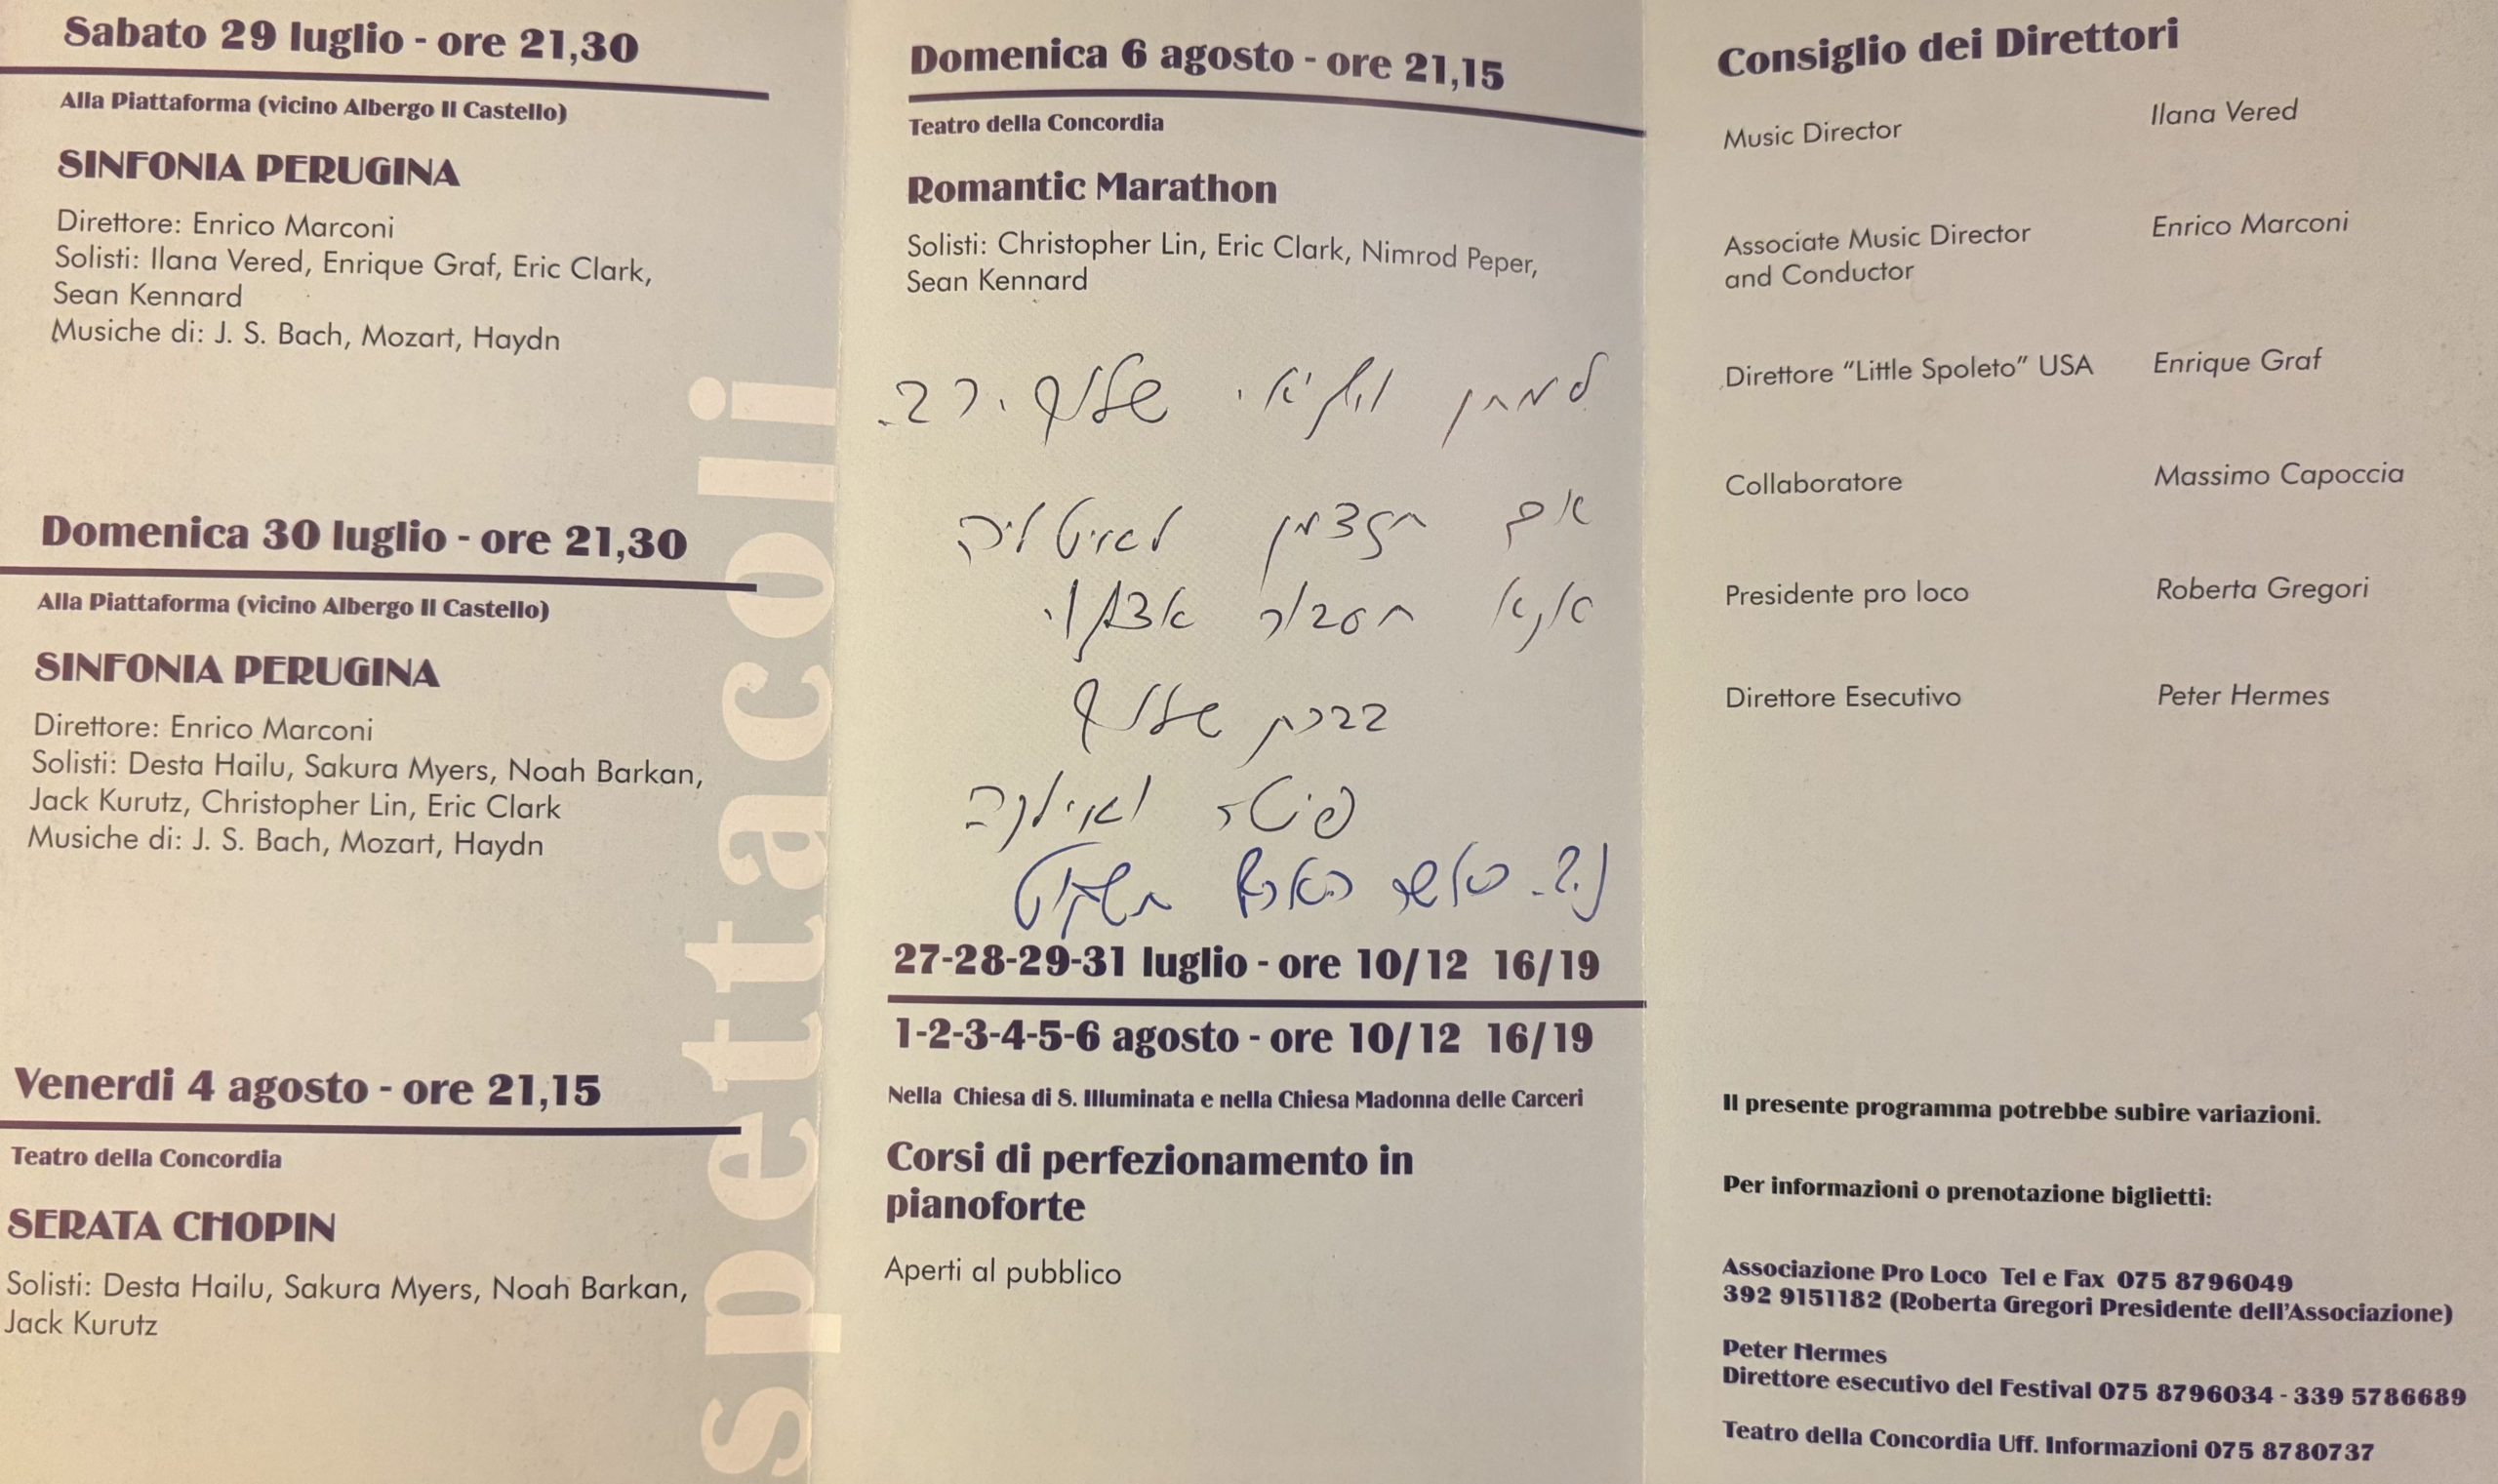 Sabato 29 luglio - ore 21,30
Alla Piattaforma (vicino Albergo Il Castello)
SINFONIA PERUGINA
Direttore: Enrico Marconi
Solisti: Ilana Vered, Enrique Graf, Eric Clark,
Sean Kennard
Musiche di: J. S. Bach, Mozart, Haydn
Domenica 30 luglio - ore 21,30
Alla Piattaforma (vicino Albergo Il Castello)
SINFONIA PERUGINA
Direttore: Enrico Marconi
Solisti: Desta Hailu, Sakura Myers, Noah Barkan,
Jack Kurutz, Christopher Lin, Eric Clark
Musiche di: J. S. Bach, Mozart, Haydn
Venerdi 4 agosto - ore 21,15
Teatro della Concordia
SERATA CHOPIN
Solisti: Desta Hailu, Sakura Myers, Noah Barkan,
Jack Kurutz
spettacoli
Domenica 6 agosto - ore 21,15
Teatro della Concordia
Romantic Marathon
Solisti: Christopher Lin, Eric Clark, Nimrod Peper,
Sean Kennard
שלום רב.
אם תזדמן לאיטליה
אנא אצלנו.
בברכת שלום
פיטר ואילנה
נ.ב.
27-28-29-31 luglio - ore 10/12 16/19
1-2-3-4-5-6 agosto - ore 10/12 16/19
Nella Chiesa di S. Illuminata e nella Chiesa Madonna delle Carceri
Corsi di perfezionamento in
pianoforte
Aperti al pubblico
Consiglio dei Direttori
Music Director Ilana Vered
Associate Music Director Enrico Marconi
and Conductor
Direttore "Little Spoleto" USA Enrique Graf
Collaboratore Massimo Capoccia
Presidente pro loco Roberta Gregori
Direttore Esecutivo Peter Hermes
Il presente programma potrebbe subire variazioni.
Per informazioni o prenotazione biglietti:
Associazione Pro Loco Tel e Fax 075 8796049
392 9151182 (Roberta Gregori Presidente dell'Associazione)
Peter Hermes
Direttore esecutivo del Festival 075 8796034 - 339 5786689
Teatro della Concordia Uff. Informazioni 075 8780737